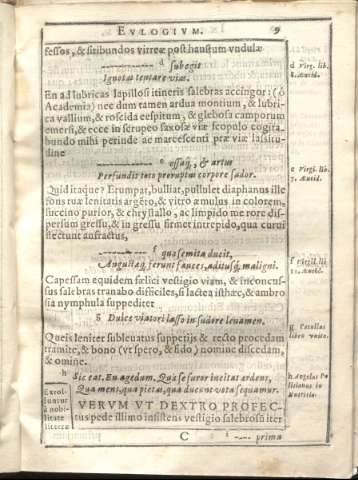 EVLOGIVM. 9
fessos, & sitibundos vitreæ post haustum vndulæ
d subegit
Ignotas tentare vias.
d Virg. lib.
8. Æneid.
En ad lubricas lapillosi itineris salebras accingor: (ô
Academia) nec dum tamen ardua montium, & lubri-
ca vallium, & roscida cespitum, & glebosa camporum
emersi, & ecce in scrupeo saxosæ viæ scopulo cogita-
bundo mihi perinde ac marcescenti præ viæ lassitu-
dine
e ossaq;, & artus
Perfundit toto proruptus corpore sudor.
e Virgi. lib.
7. Æneid.
Quid itaque? Erumpat, bulliat, pullulet diaphanus ille
fons tuæ lenitatis argéto, & vitro æmulus in colorem,
succino purior, & chrystallo, ac limpido me rore di-
spersum gressu, & in gressu firmet intrepido, qua curui
flectunt anfractus,
f qua semita ducit,
Angustæq; ferunt fauces, aditusq; maligni.
f Virgil. li.
11. Æneid.
Capessam equidem felici vestigio viam, & inconcus-
sus salebras tranabo difficiles, si lactea isthæc, & ambro
sia nymphula suppeditet
g Dulce viatori lasso in sudore leuamen.
g. Catullus
Queis leniter subleuatus suppetijs & recto procedam
tramite, & bono (vt spero, & fido) nomine discedam,
& omine.
h Sic eat. En agedum. Qua se furor incitat ardens,
Qua mens, qua pietas, qua ducunt vota sequamur.
h. Angelus Po
litianus in
Nutricia.
Exrol-
luntur
à nobi-
litate
literæ
VERVM VT DEXTRO PROFEC-
tus pede illimo insistens vestigio salebrosa iter
C prima